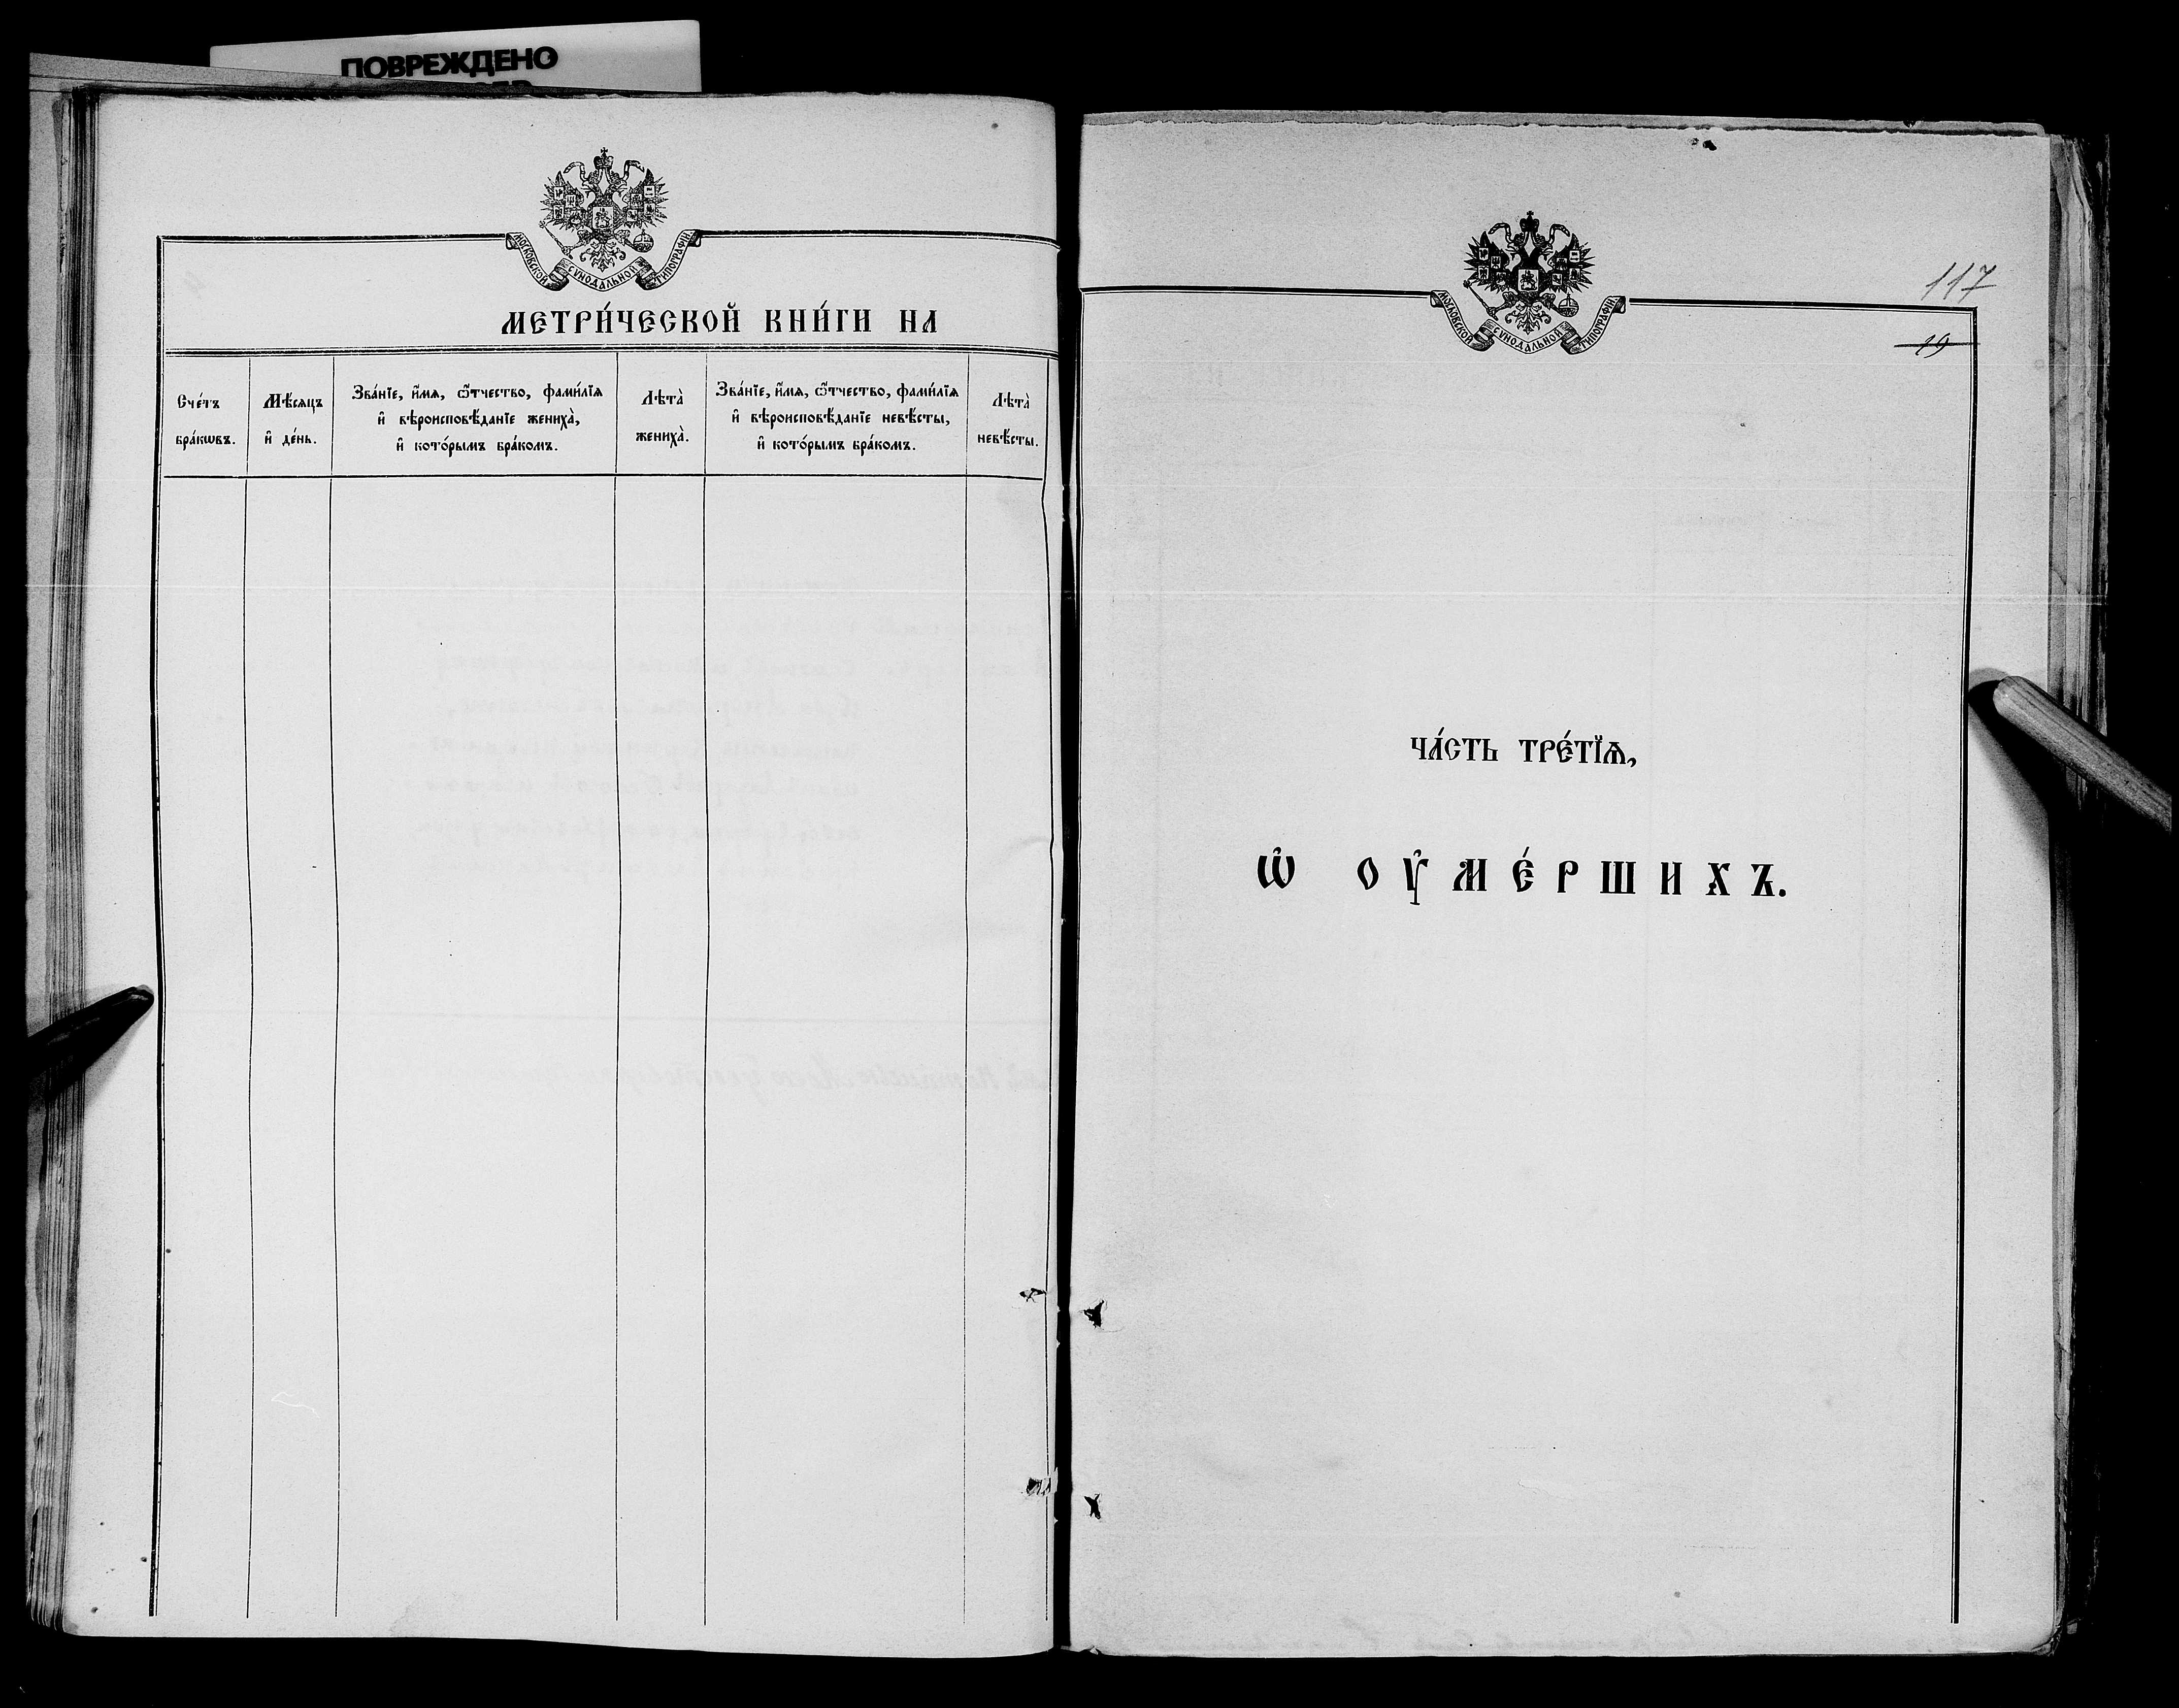 ПОВРЕЖДЕНО
МОСКОВСКОЙ СѴНОДАЛЬНОЙ ТИПОГРАФІИ
МЕТРИ́ЧЕСКОЙ КНИ́ГИ НА
Сче́тъ бра́кѡвъ.
Мѣ́сяцъ и҆ де́нь.
Зва́нїе, и҆́мя, ѻ҆́тчество, фами́лїя
и҆ вѣроисповѣ́данїе жениха̀,
и҆ кото́рымъ бра́комъ.
Лѣта̀ жениха̀.
Зва́нїе, и҆́мя, ѻ҆́тчество, фами́лїя
и҆ вѣроисповѣ́данїе невѣ́сты,
и҆ кото́рымъ бра́комъ.
Лѣта̀ невѣ́сты.
МОСКОВСКОЙ СѴНОДАЛЬНОЙ ТИПОГРАФІИ
117
19
ЧА́СТЬ ТРЕ́ТЇѦ,
Ѡ҆ ОУ҆МЕ́РШИХЪ.